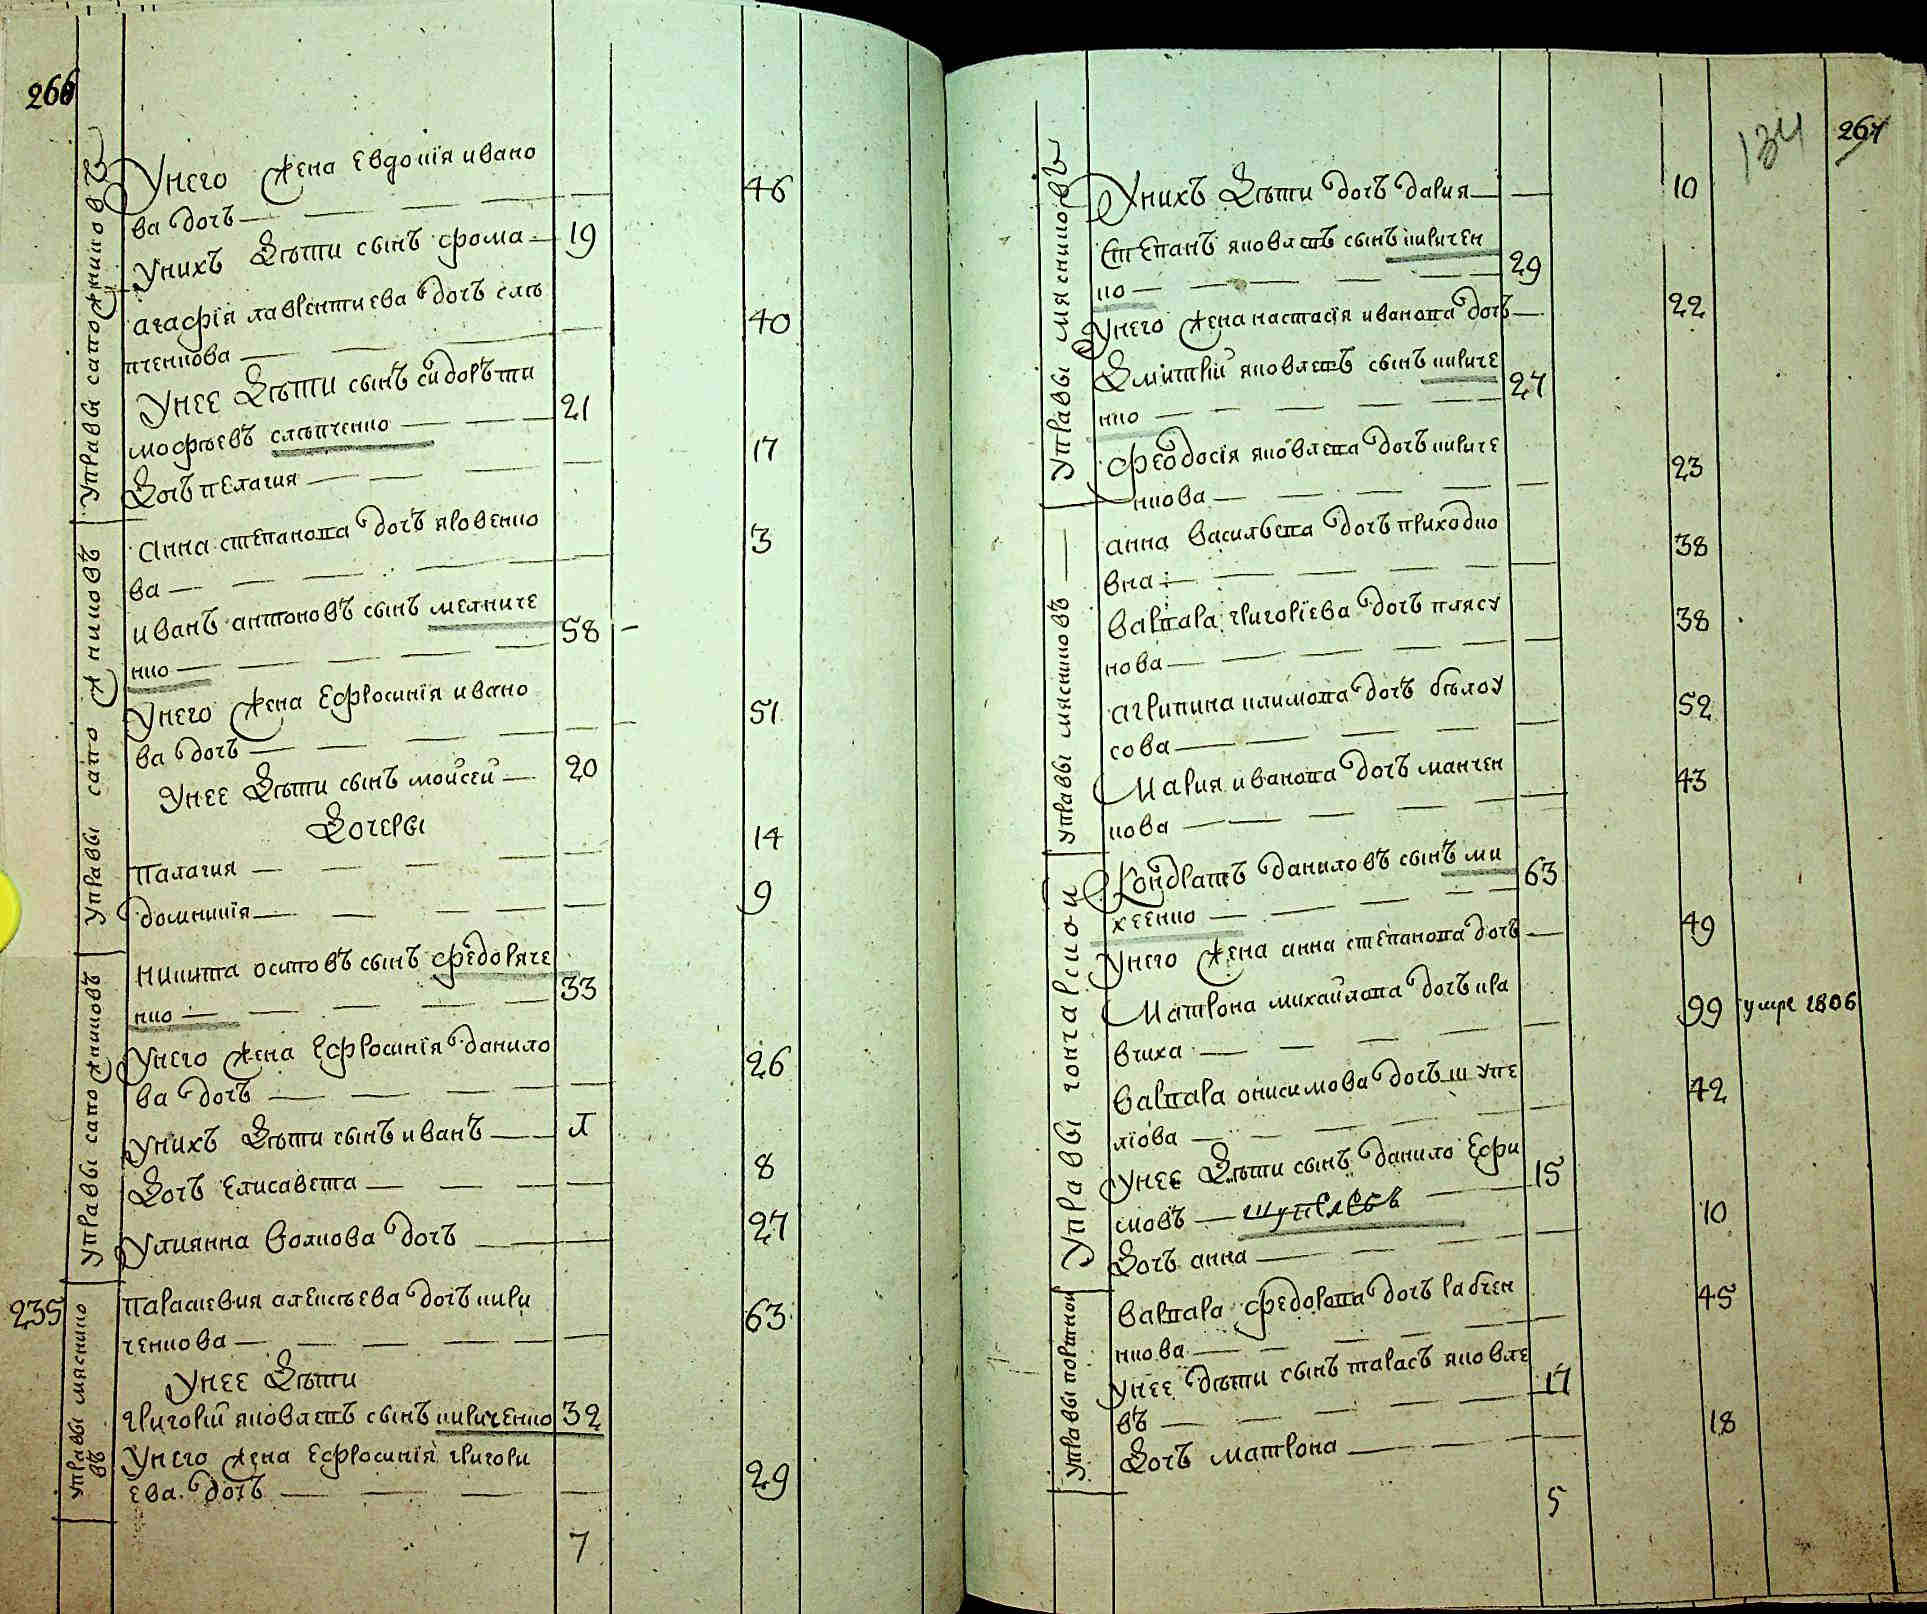 266
Управы сапожниковъ
Унего жена Евдокія ивано
ва дочь 46
Унихъ Дѣти сынъ фома 19
агафія лаврентиева дочь слѣ
пченкова 40
Унее Дѣти сынъ сидоръ ти
мофѣевъ слѣпченко 21
Дочь пелагия 17
Управы сапожниковъ
Анна степанова дочь яровенко
ва 3
иванъ антоновъ сынъ мелниче
нко 58
Унего жена Ефросинія ивано
ва дочь 51
Унее Дѣти сынъ мойсей 20
Дочеры
палагия 14
домникія 9
Управы сапожниковъ
никита осиповъ сынъ федоряче
нко 33
Унего жена Ефросинія данило
ва дочь 26
Унихъ Дѣти сынъ иванъ
Дочь Елисавета 8
Улиянна волкова дочь 27
235
Управы мяснико
въ
параскевия алексѣева дочь кири
ченкова 63
Унее Дѣти
григорій яковлевъ сынъ кириченко 32
Унего жена Ефросинія григори
ева дочь 29
7
134
267
Управы мясниковъ
Унихъ Дѣти дочь дария 10
Степанъ яковлевъ сынъ киричен
ко 29
Унего жена настасія иванова дочь 22
Дмитрій яковлевъ сынъ кириче
нко 27
феодосія яковлева дочь кириче
нкова 23
Управы мясниковъ
анна васильева дочь приходко
вна 38
варвара григоріева дочь плясу
нова 38
агрипина климова дочь бѣлоу
сова 52
Мария иванова дочь манчен
кова 43
Управы гончарской
Кондратъ даниловъ сынъ ми
хеенко 63
Унего жена анна степанова дочь 49
Матрона михайлова дочь кра
вчиха 99 умре 1806
варвара онисимова дочь шупе
лїова 42
Унее Дѣти сынъ данило Ефи
мовъ 15
Дочь анна 10
Управы портной
варвара федорова дочь рабчен
нкова 45
Унее дѣти сынъ тарасъ яковле
въ 17
Дочь матрона 18
5